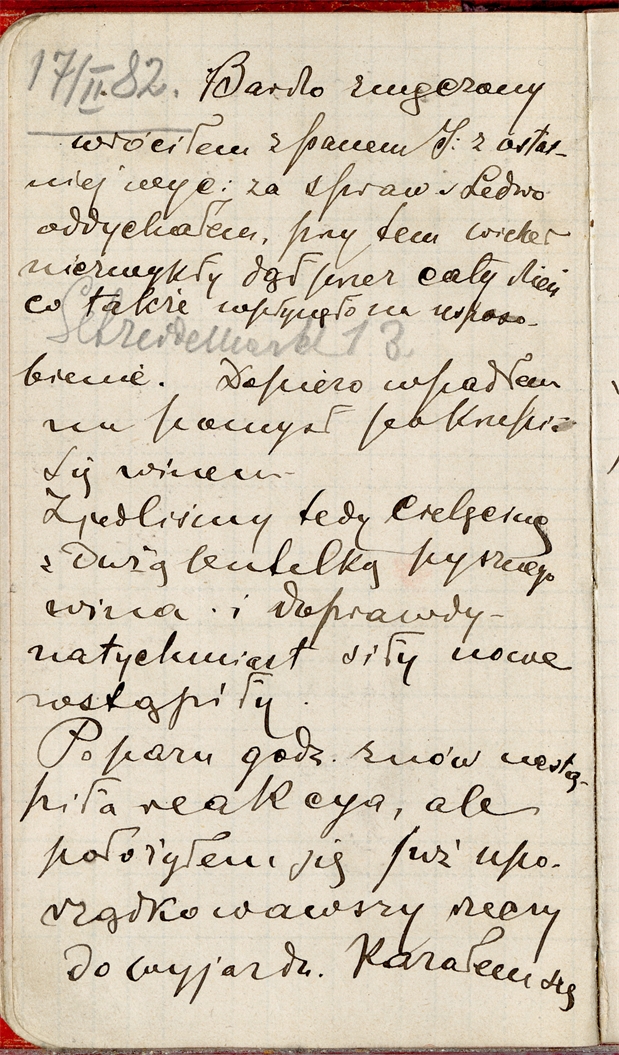 17/II.82. Bardzo zmęczony
wróciłem z panem J: z ostat-
niej wyc: za spraw. Ledwo
oddychałem, przy tem wicher
niezwykły dął przez cały dzień
co także wpłynęło na uspaso-
Getreidemarkt 13
bienie. Dopiero wpadłem
na pomysł pokrzepić
się winem
Zjedliśmy tedy cielęcinę
z dużą butelką pysznego
wina i doprawdy
natychmiast siły nowe
wstąpiły.
Po paru godz. znów nastą-
piła reakcya, ale
położyłem się już upo-
rządkowawszy rzeczy
do wyjazdu. Kazałem się